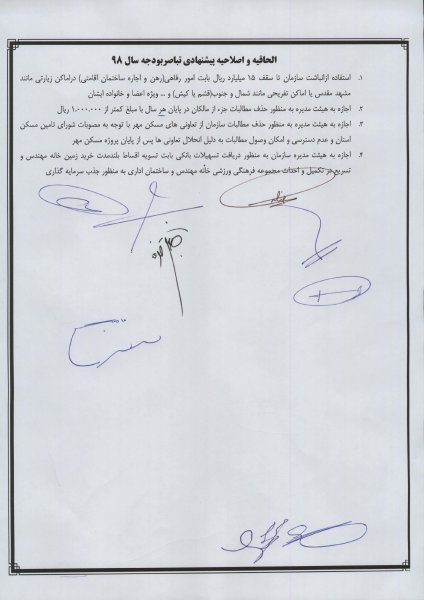 الحاقیه و اصلاحیه پیشنهادی تباصربودجه سال ۹۸
۱. استفاده ازانباشت سازمان تا سقف ۱۵ میلیارد ریال بابت امور رفاهی(رهن و اجاره ساختمان اقامتی) دراماکن زیارتی مانند
مشهد مقدس یا اماکن تفریحی مانند شمال و جنوب(قشم یا کیش) و ... ویژه اعضا و خانواده ایشان
۲. اجازه به هیئت مدیره به منظور حذف مطالبات جزء از مالکان در پایان هر سال با مبلغ کمتر از ۱.۰۰۰.۰۰۰ ریال
۳. اجازه به هیئت مدیره به منظور حذف مطالبات سازمان از تعاونی های مسکن مهر با توجه به مصوبات شورای تامین مسکن
استان و عدم دسترسی و امکان وصول مطالبات به دلیل انحلال تعاونی ها پس از پایان پروژه مسکن مهر
۴. اجازه به هیئت مدیره سازمان به منظور دریافت تسهیلات بانکی بابت تسویه اقساط بلندمدت خرید زمین خانه مهندس و
تسریع در تکمیل و احداث مجموعه فرهنگی ورزشی خانه مهندس و ساختمان اداری به منظور جذب سرمایه گذاری